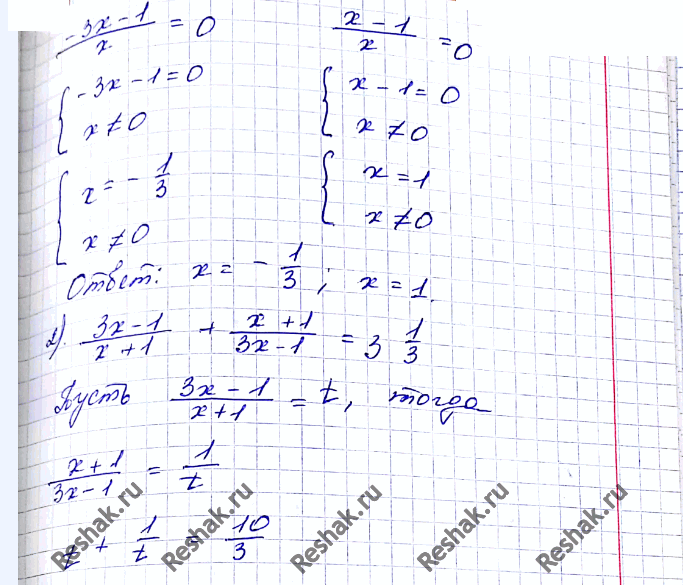 (-3x-1)/x = 0    (x-1)/x = 0
{ -3x-1=0    { x-1=0
{ x≠0    { x≠0
{ x=-1/3    { x=1
{ x≠0    { x≠0
Ответ: x = -1/3; x = 1.
2). (3x-1)/(x+1) + (x+1)/(3x-1) = 3 1/3
Пусть (3x-1)/(x+1) = t, тогда
(x+1)/(3x-1) = 1/t
t + 1/t = 10/3
Reshak.ru Reshak.ru Reshak.ru Reshak.ru Reshak.ru